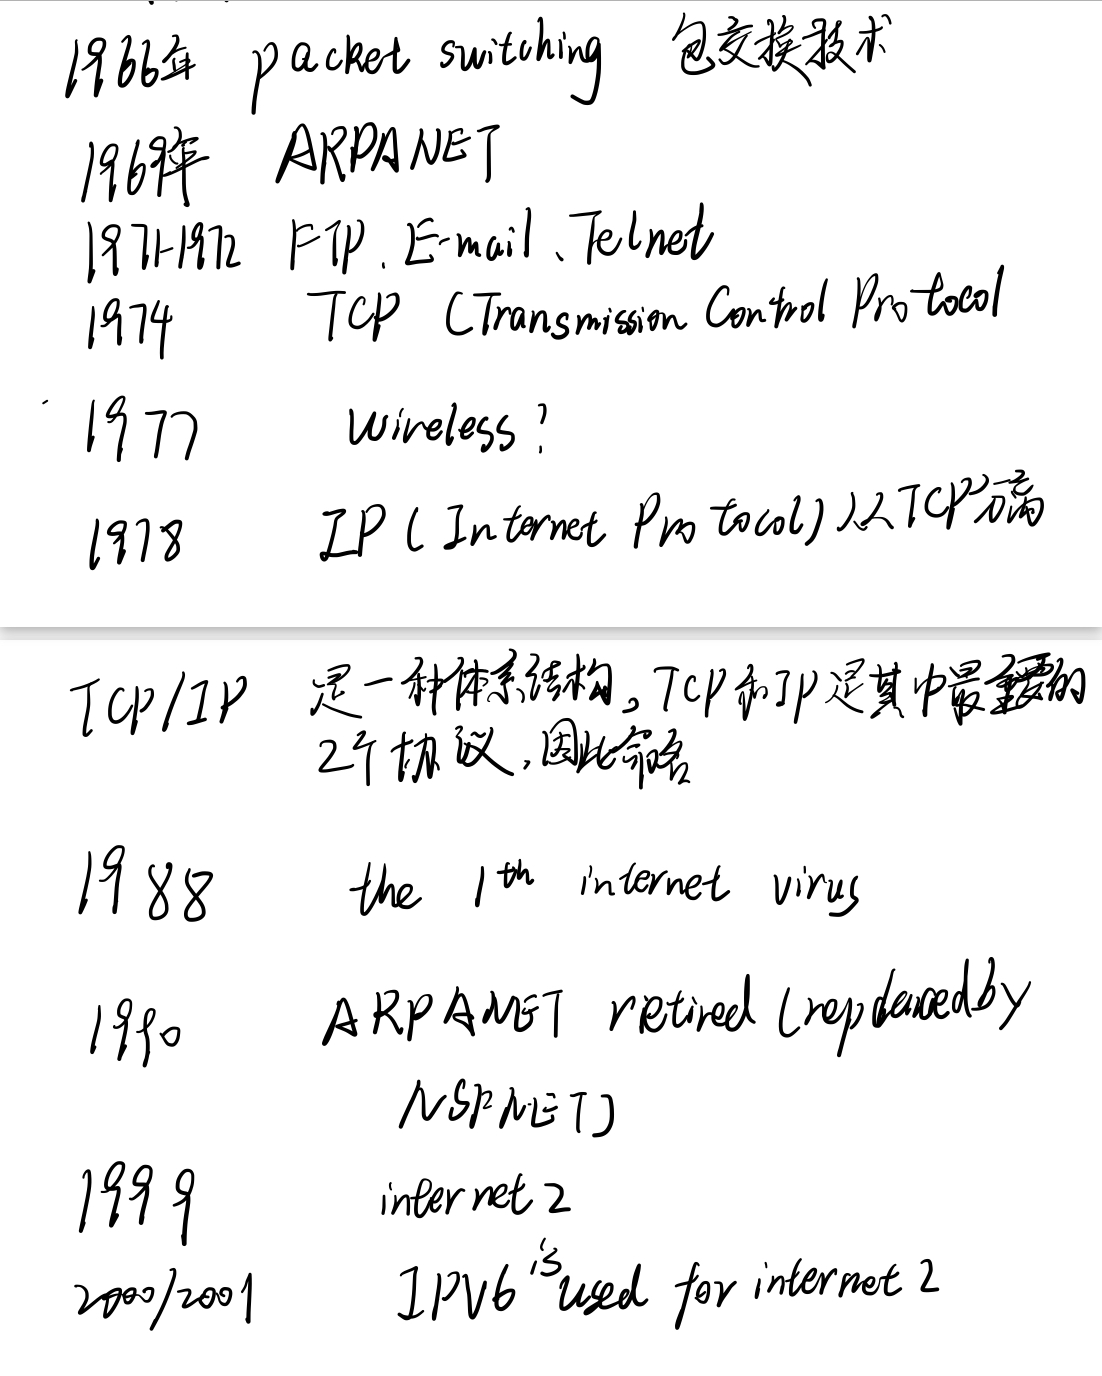 1966年 packet switching 包交换技术
1969年 ARPANET
1971-1972 FTP、E-mail、Telnet
1974 TCP (Transmission Control Protocol
1977 wireless?
1978 IP (Internet Protocol) 从TCP分离
TCP/IP 是一种体系结构。TCP和IP是其中最重要的
2个协议,因此命名
1988 the 1th internet virus
1990 ARPANET retired (replaced by
NSFNET)
1999 internet 2
2000/2001 IPV6 is used for internet 2